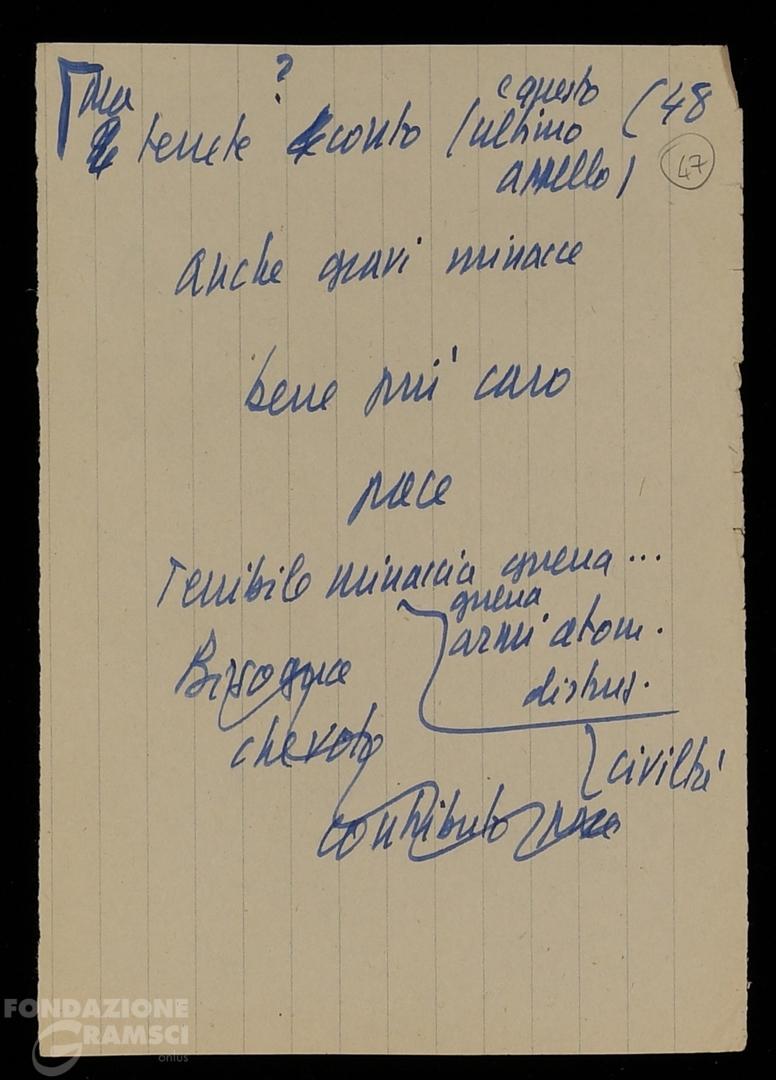 Ma ? e questo (48
tenete conto (ultimo 47
appello)
anche gravi minacce
bene più caro
pace
Terribile minaccia guerra...
guerra
armi atom.
Bisogna
distrus.
che voto
civiltà
contributo pace
FONDAZIONE
GRAMSCI
onlus